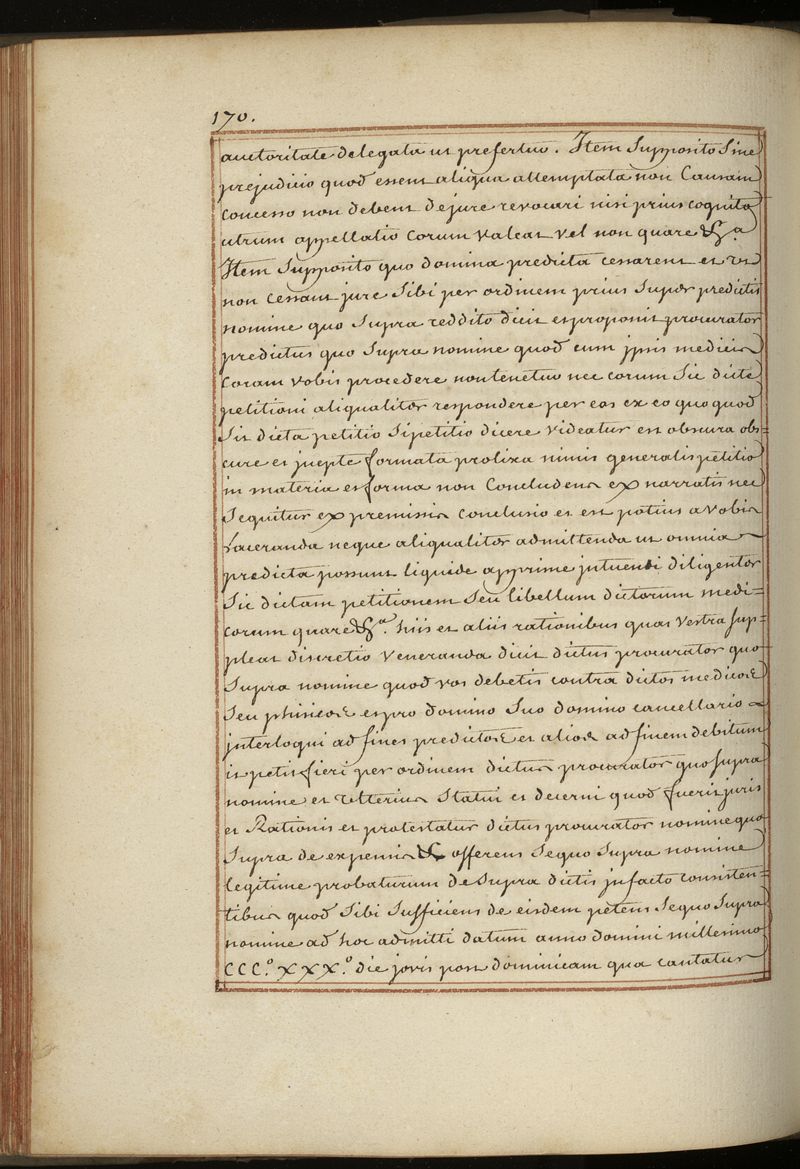 170.
auctoritate delegata ut prefertur. Item Supposito Sine
prejudicio quod essent aliqua attemptata non Causam
Concesso non debent de jure revocari nisi prius cognito
utrum appellatio eorum valeat vel non quare &ª
Item Supposito quo domina predicta cessarent et ut
non cessant jure Sibi per ordinem prius Super predictis
nomine quo Supra reddito dicit et proponit procurator
predictus quo Supra nomine quod cum ipsis medicis
Coram vobis procedere non tenetur nec eorum Sic dicte
petitioni aliqualiter respondere per eos ex eo quo quod
Sit dicta petitio Si petitio dicere videatur est obscura obs=
cure et inepte formata prolixa nimis generalis petitio
in materia et forma non Concludens ex narratis nec
Sequitur ex premissis conclusio et est potius a vobis
Laceranda neque aliqualiter admittenda ut omnia
predicta possunt liquide apprime intuendi diligenter
Sic dictam petitionem Seu libellum dictorum medi=
corum quare &ª. hiis et aliis rationibus quas vestra Sup=
pleat discretio Veneranda dicit dictus procurator quo
Supra nomine quod vos debetis contra dictos medicos
Seu phisicos et pro domino Suo domino cancellario
interloqui ad fines predictos et alios ad finem debitum
et petit fieri per ordinem dictus procurator quo Supra
nomine et Ulterius Statui et decerni quod fuerit juris
et Rationis et protestatur dictus procurator nomine quo
Supra de expensis & offerens Se quo Supra nomine
legitime probaturum de Supra dictis in facto consisten=
tibus quod Sibi Sufficiens de eisdem petens Se quo Supra
nomine ad hoc admitti datum anno domini millesimo
CCC.º XXX.º die jovis post dominicam qua cantatur